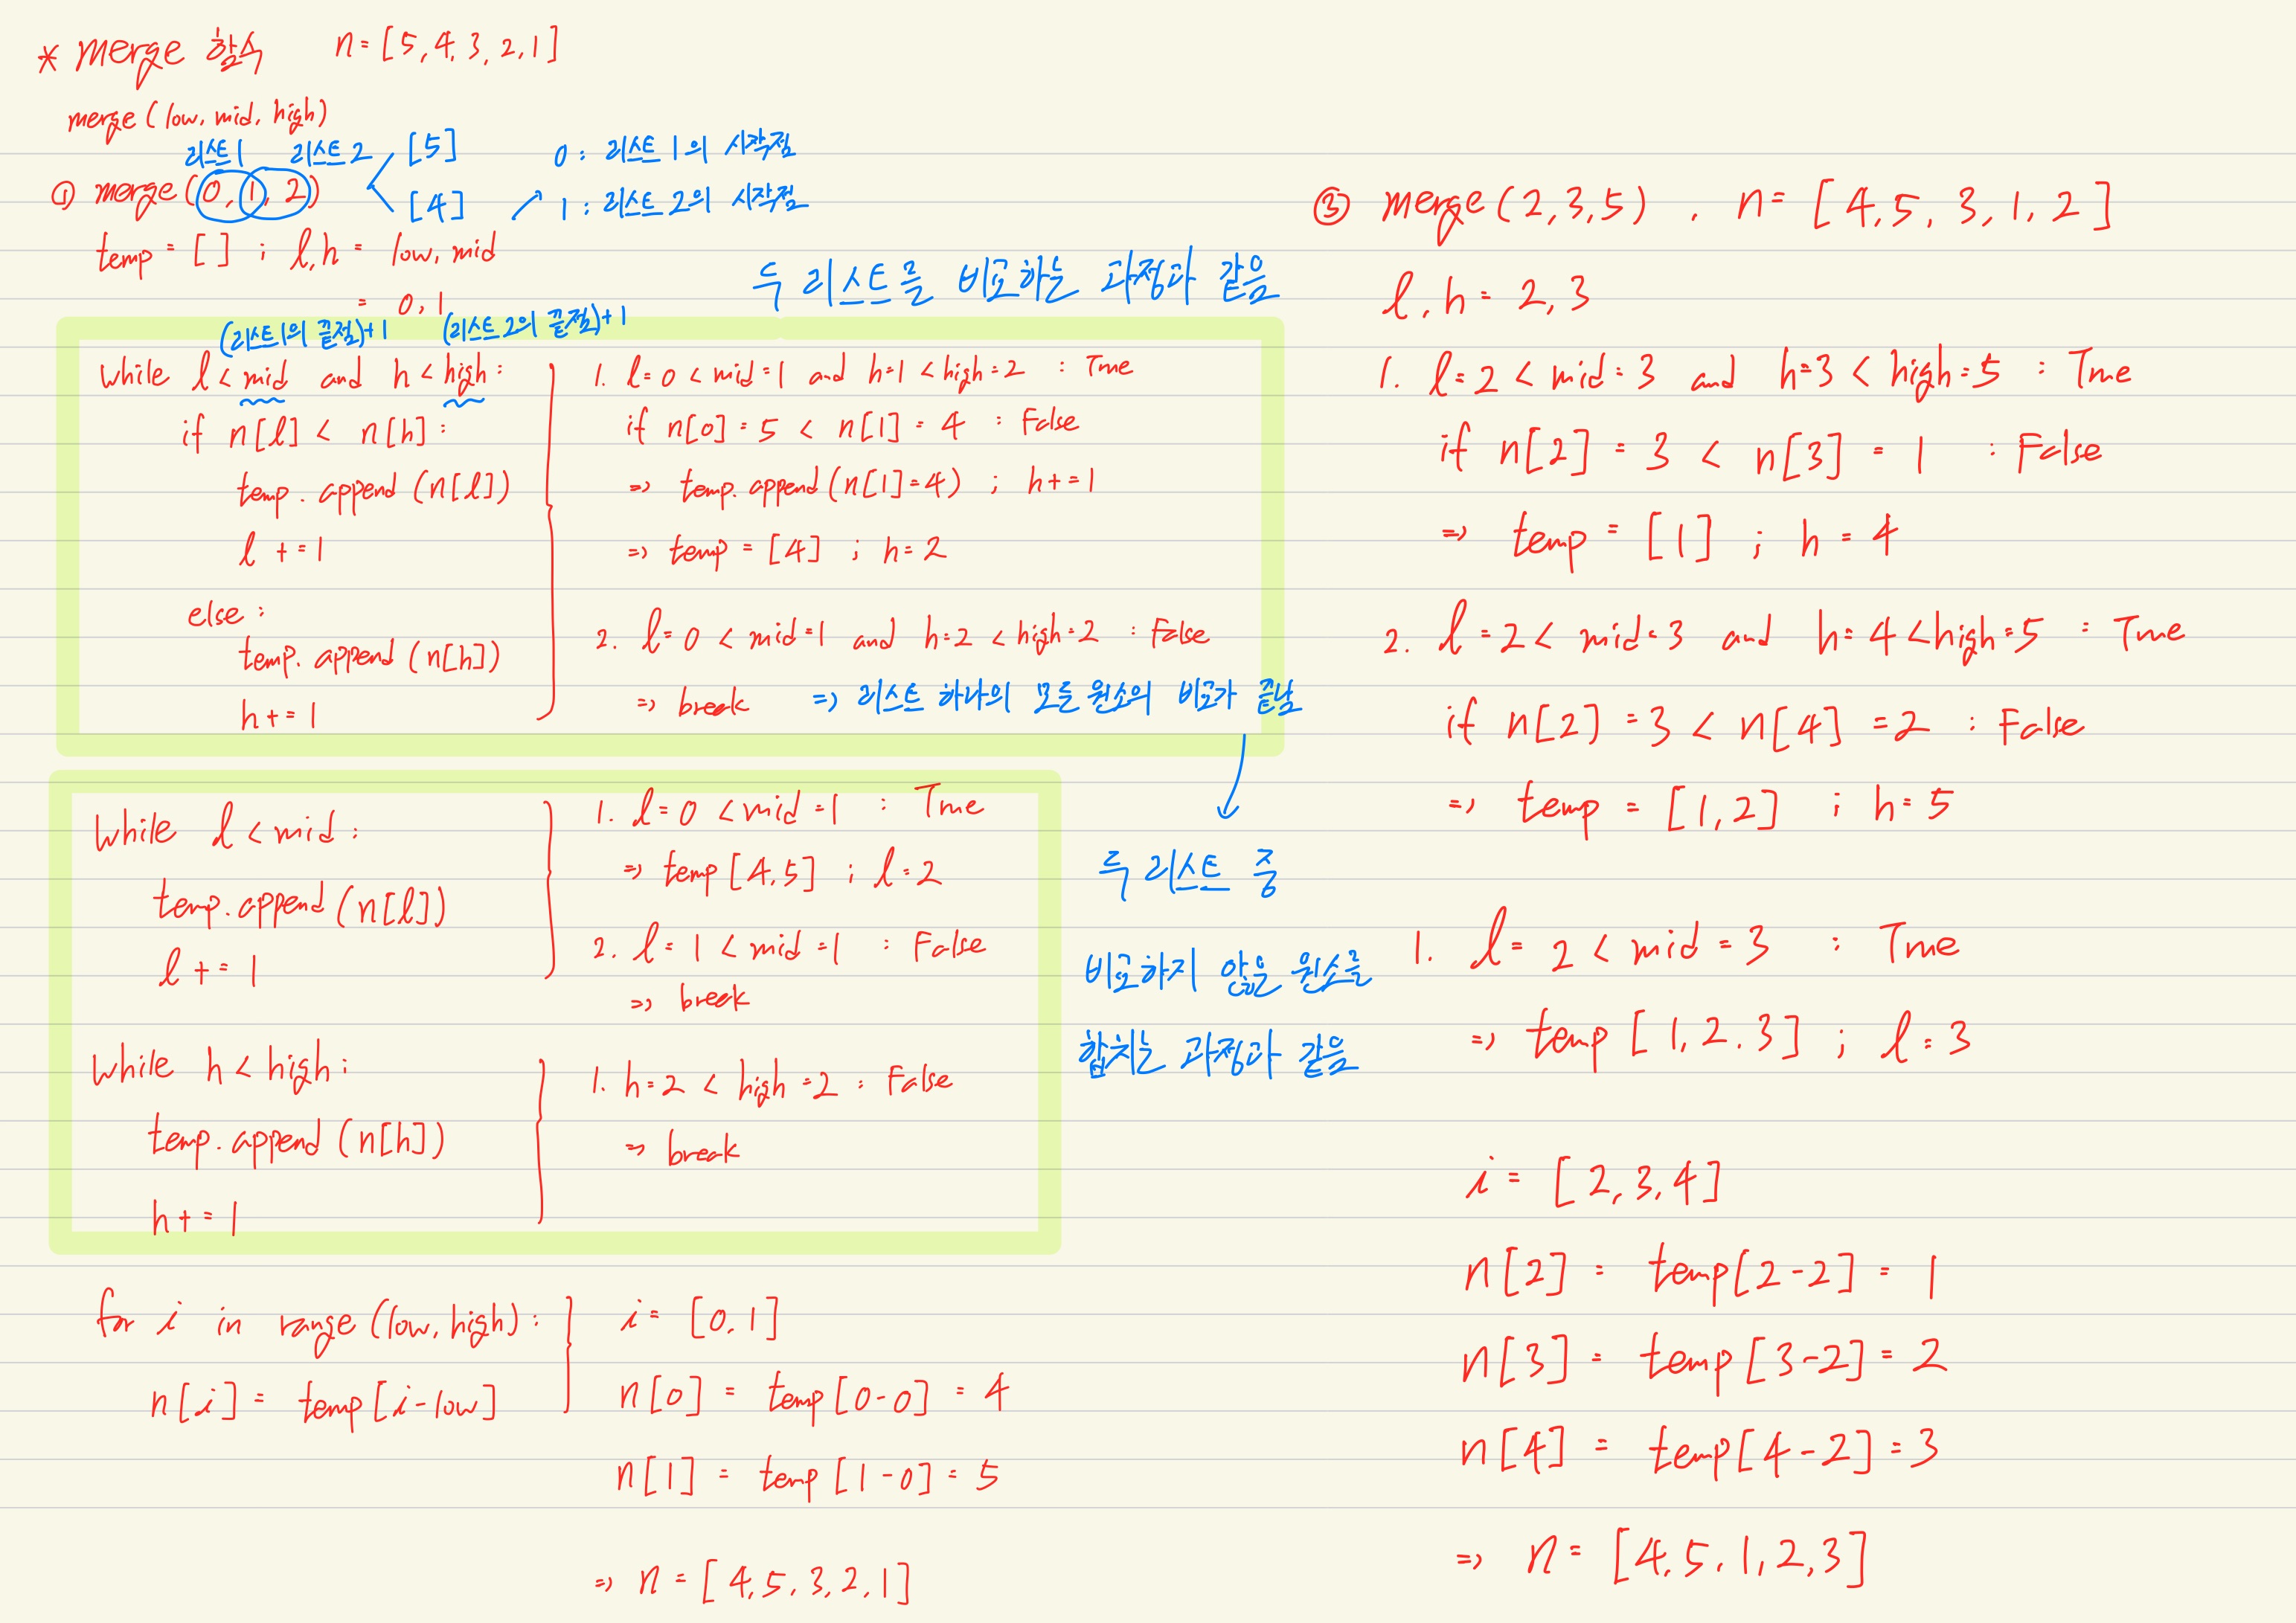 * merge 함수 n = [5, 4, 3, 2, 1]
merge (low, mid, high)
리스트1 리스트2 [5] 0 : 리스트 1의 시작점
① merge (0, 1, 2) [4] 1 : 리스트 2의 시작점
temp = [ ] ; l, h = low, mid
= 0, 1
두 리스트를 비교하는 과정과 같음
(리스트1의 끝점)+1 (리스트2의 끝점)+1
while l < mid and h < high :
if n[l] < n[h] :
temp. append (n[l])
l += 1
else :
temp. append (n[h])
h += 1
1. l = 0 < mid = 1 and h = 1 < high = 2 : True
if n[0] = 5 < n[1] = 4 : False
=> temp. append (n[1] = 4) ; h += 1
=> temp = [4] ; h = 2
2. l = 0 < mid = 1 and h = 2 < high = 2 : False
=> break => 리스트 하나의 모든 원소의 비교가 끝남
while l < mid :
temp. append (n[l])
l += 1
1. l = 0 < mid = 1 : True
=> temp [4, 5] ; l = 2
2. l = 1 < mid = 1 : False
=> break
두 리스트 중
비교하지 않은 원소를
합치는 과정과 같음
while h < high :
temp. append (n[h])
h += 1
1. h = 2 < high = 2 : False
=> break
for i in range (low, high) :
n[i] = temp [i - low]
i = [0, 1]
n[0] = temp [0-0] = 4
n[1] = temp [1-0] = 5
=> n = [4, 5, 3, 2, 1]
③ merge (2, 3, 5) . n = [4, 5, 3, 1, 2]
l, h = 2, 3
1. l = 2 < mid = 3 and h = 3 < high = 5 : True
if n[2] = 3 < n[3] = 1 : False
=> temp = [1] ; h = 4
2. l = 2 < mid = 3 and h = 4 < high = 5 : True
if n[2] = 3 < n[4] = 2 : False
=> temp = [1, 2] ; h = 5
1. l = 2 < mid = 3 : True
=> temp [1, 2. 3] ; l = 3
i = [2, 3, 4]
n[2] = temp[2-2] = 1
n[3] = temp[3-2] = 2
n[4] = temp[4-2] = 3
=> n = [4, 5, 1, 2, 3]